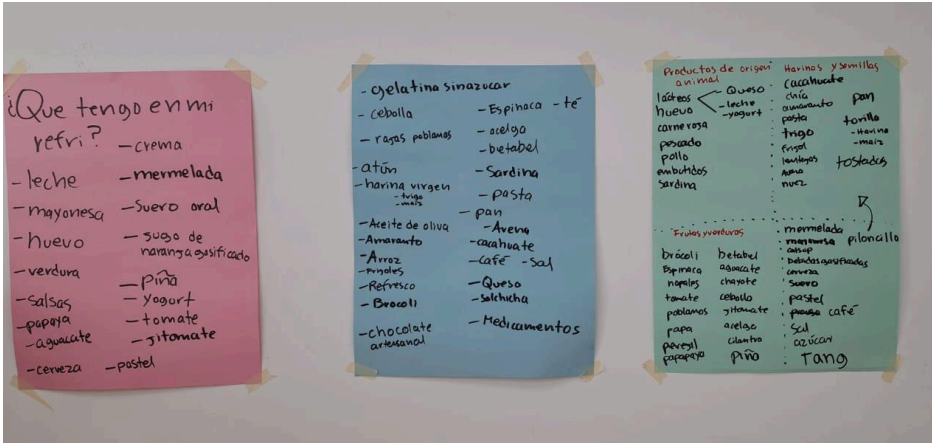 ¿Que tengo en mi
refri?
- leche
- mayonesa
- huevo
- verdura
- salsas
- papaya
- aguacate
- cerveza
- crema
- mermelada
- Suero oral
- Jugo de
naranja gasificado
- Piña
- yogurt
- tomate
- jitomate
- pastel
- gelatina sin azucar
- cebolla
- rajas poblanos
- atún
- harina virgen
- trigo
- maiz
- Aceite de oliva
- Amaranto
- Arroz
- Frijoles
- Refresco
- Brocoli
- chocolate
artesanal
- Espinaca - té
- acelga
- betabel
- Sardina
- pasta
- pan
- Avena
- cacahuate
- café - Sal
- Queso
- Salchicha
- Medicamentos
Productos de origen
animal
lácteos
- Queso
- leche
- yogurt
huevo
carne roja
pescado
pollo
embutidos
Sardina
Harinas y semillas
cacahuate
chía
amaranto
pasta
trigo
frijol
lentejas
Avena
nuez
pan
torilla
- Harina
- maiz
tostadas
Frutas y verduras
brócoli
Espinaca
nopales
tomate
poblamos
papa
perejil
papapaya
betabel
aguacate
chayote
cebolla
jitomate
acelga
cilantro
Piña
mermelada
mayonesa
catsup
bebidas gasificadas
cerveza
suero
pastel
café
Sal
azúcar
Tang
piloncillo